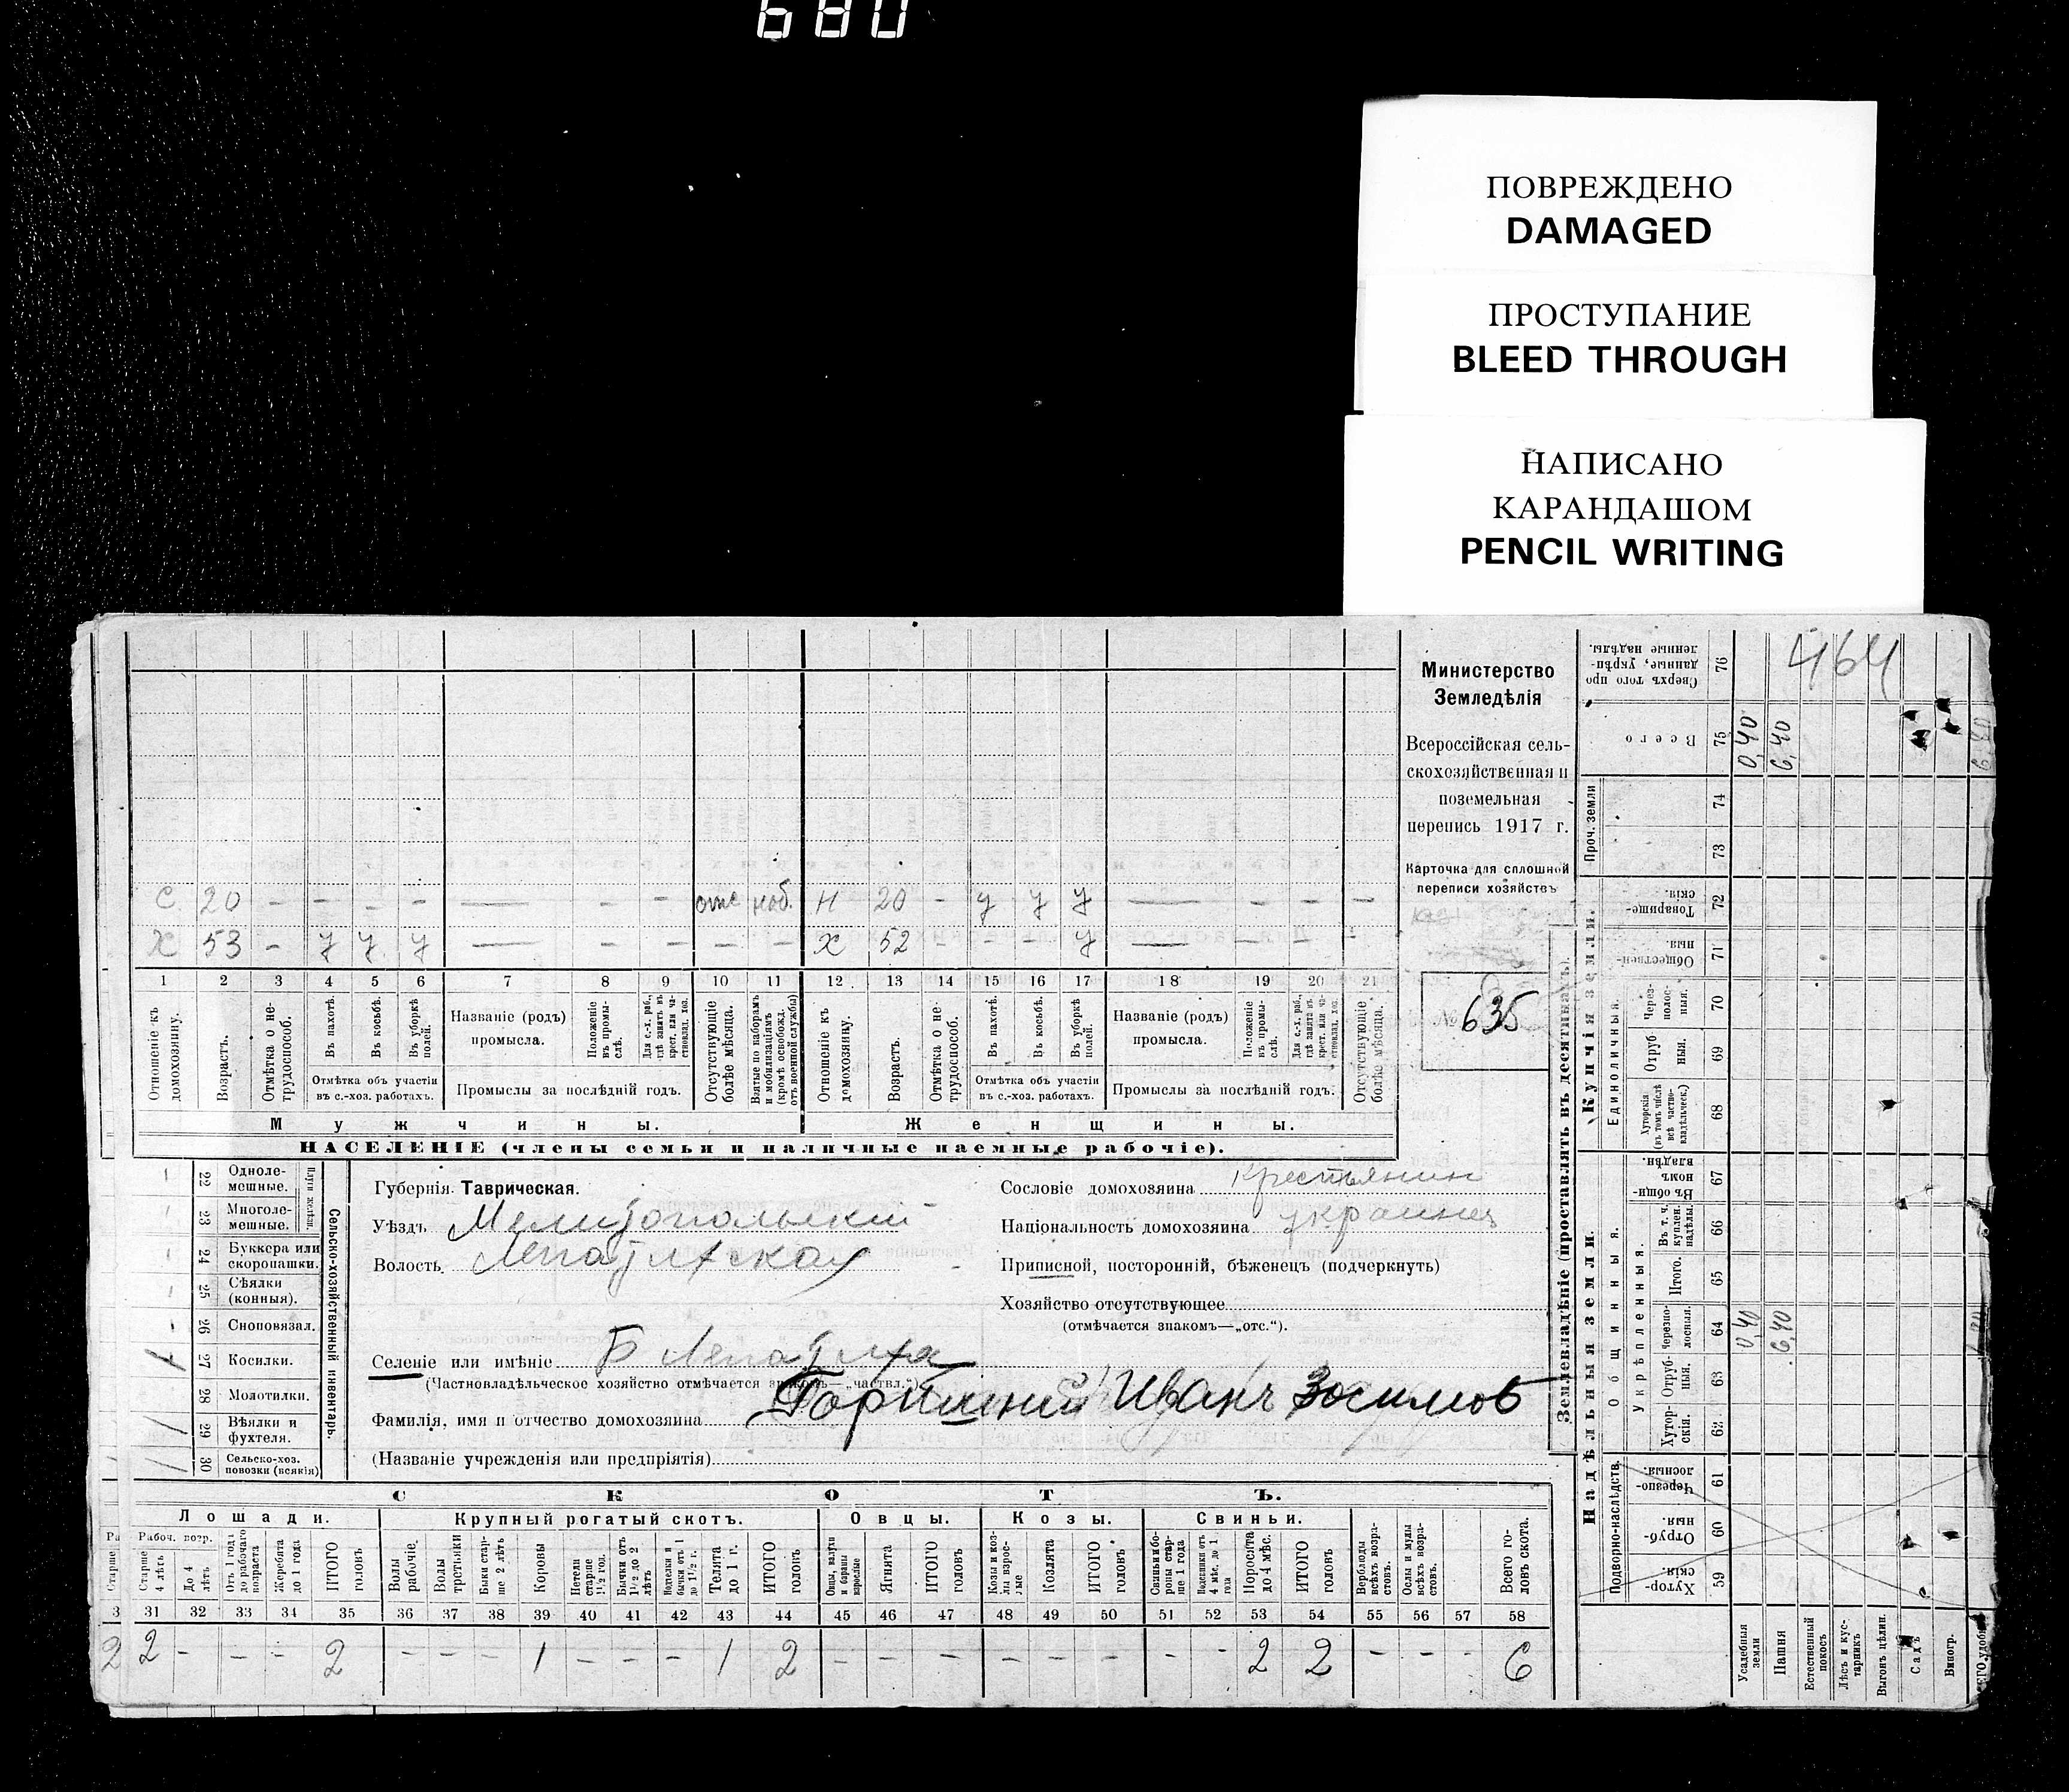 680
ПОВРЕЖДЕНО
DAMAGED
ПРОСТУПАНИЕ
BLEED THROUGH
НАПИСАНО
КАРАНДАШОМ
PENCIL WRITING
464
Министерство
Земледѣлія
Всероссійская сель-
скохозяйственная и
поземельная
перепись 1917 г.
Карточка для сплошной
переписи хозяйствъ
№ 635
С 20 - - - - — - - отс моб. Н 20 - у у у — - - -
Х 53 - у у у — - - - - Х 52 - - - у — - - -
1 2 3 4 5 6 7 8 9 10 11 12 13 14 15 16 17 18 19 20 21
Отношеніе къ домохозяину.
Возрастъ.
Отмѣтка о не-трудоспособ.
Въ пахотѣ.
Въ косьбѣ.
Въ уборкѣ полей.
Отмѣтка объ участіи
въ с.-хоз. работахъ.
Названіе (родъ)
промысла.
Положеніе въ промы-слѣ.
Для с.-х. раб., гдѣ занятъ въ крест. или ча-стновлад. хоз.
Промыслы за послѣдній годъ.
Отсутствующіе болѣе мѣсяца.
Взятые по наборамъ и мобилизаціямъ (кромѣ освобожд. отъ военной службы)
Отношеніе къ домохозяину.
Возрастъ.
Отмѣтка о не-трудоспособ.
Въ пахотѣ.
Въ косьбѣ.
Въ уборкѣ полей.
Отмѣтка объ участіи
въ с.-хоз. работахъ.
Названіе (родъ)
промысла.
Положеніе въ промы-слѣ.
Для с.-х. раб., гдѣ занята въ крест. или ча-стновлад. хоз.
Промыслы за послѣдній годъ.
Отсутствующіе болѣе мѣсяца.
Мужчины. Женщины.
НАСЕЛЕНІЕ (члены семьи и наличные наемные рабочіе).
Сельско-хозяйственный инвентарь.
22 Одноле-мешные.
23 Многоле-мешные.
24 Буккера или скоропашки.
25 Сѣялки (конныя).
26 Сноповязал.
27 Косилки. 1
28 Молотилки.
29 Вѣялки и фухтеля. 1
30 Сельско-хоз. повозки (всякія) 1
Губернія Таврическая.
Уѣздъ Мелитопольскій
Волость Лепатихская
Селеніе или имѣніе Б Лепатиха
(Частновладѣльческое хозяйство отмѣчается знакомъ—„частвл.“)
Фамилія, имя и отчество домохозяина Горишній Иванъ Зосимов
(Названіе учрежденія или предпріятія)
Сословіе домохозяина крестьянин
Національность домохозяина украинец
Приписной, посторонній, бѣженецъ (подчеркнуть)
Хозяйство отсутствующее
(отмѣчается знакомъ—„отс.“).
СКОТЪ.
Лошади. Крупный рогатый скотъ. Овцы. Козы. Свиньи.
Рабоч. возр.
Старше 4 лѣтъ
До 4 лѣтъ
Отъ 1 года до рабочаго возраста
Жеребята до 1 года
ИТОГО головъ
Волы рабочіе
Волы третьяки
Быки стар-ше 2 лѣтъ
Коровы
Нетели старше 1½ год.
Бычки отъ 1½ до 2 лѣтъ
Телята до 1 г.
ИТОГО головъ
Ягнята
ИТОГО головъ
Козы и коз-лы взрос-лые
Козлята
ИТОГО головъ
Свиньи бо-ровы стар-ше 1 года
Поросята до 4 мѣс.
ИТОГО головъ
Верблюды всѣхъ возра-стовъ.
Ослы и мулы всѣхъ возра-стовъ.
Всего го-ловъ скота.
3 31 32 33 34 35 36 37 38 39 40 41 42 43 44 45 46 47 48 49 50 51 52 53 54 55 56 57 58
2 2 - - - 2 - - - 1 - - - 1 2 - - - - - - - - 2 2 - - - 6
Землевладѣніе (проставлять въ десятинахъ).
Надѣльныя земли. Купчія земли.
Подворно-наслѣдств.
Общинныя.
Укрѣпленныя.
Единоличныя.
Проч. земли
59 Хутор-скія.
60 Отруб-ныя.
61 Черезпо-лосныя.
62 Хутор-скія.
63 Отруб-ныя.
64 Черезпо-лосныя. 0,40 6,40
65 Итого.
66 Въ т. ч. куплен. надѣлы.
67 Въ общи-номъ владѣн.
68 Хуторскія (въ томъ числѣ всѣ частно-владѣльческ.)
69 Отруб-ныя.
70 Через-полос-ныя.
71 Обществен-ныя
72 Товарище-скія.
73
74
75 Всего 0,40 6,40
76 Сверхъ того про-данные, укрѣп-ленные надѣлы.
Усадебныя земли
Пашня
Естественный покосъ
Лѣсъ и кус-тарникъ
Выгонъ цѣлин.
Садъ
Виногр.